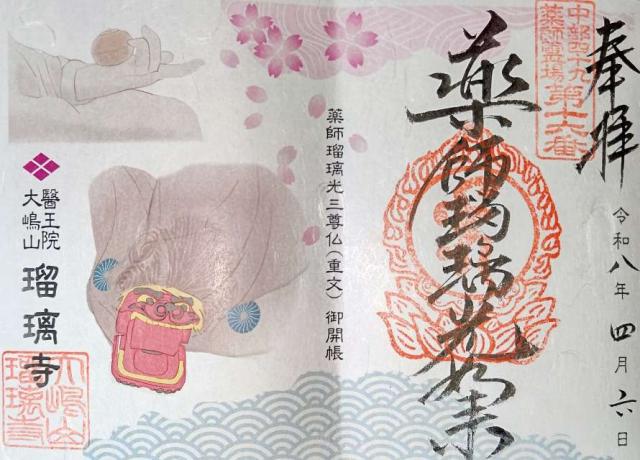 奉拝
令和八年 四月六日
中部四十九
薬師霊場 第十六番
薬師瑠璃光如来
薬師瑠璃光三尊仏（重文）御開帳
醫王院
大嶋山
瑠璃寺
大嶋山
瑠璃寺